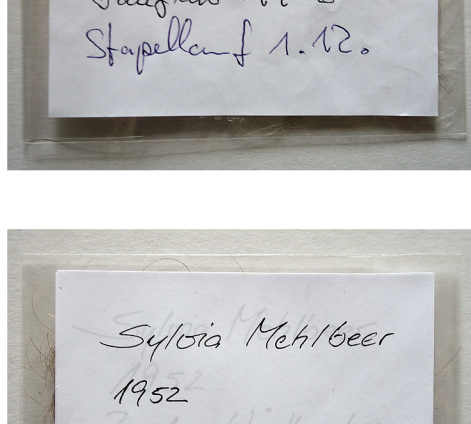 Stapellauf 1.12.
Sylvia Mehlbeer
1952